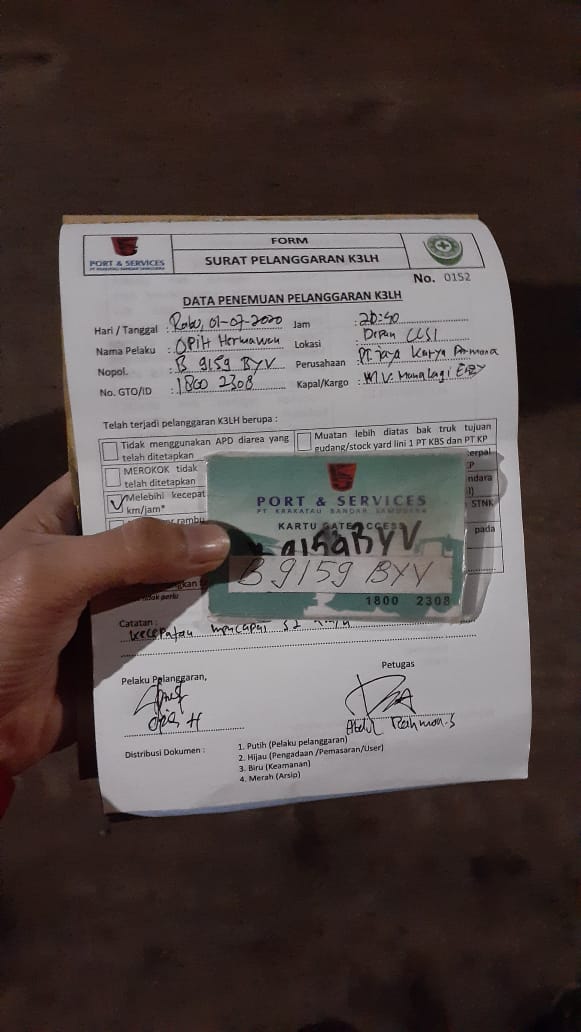 PORT & SERVICES
PT KRAKATAU BANDAR SAMUDERA
FORM
SURAT PELANGGARAN K3LH
No. 0152
DATA PENEMUAN PELANGGARAN K3LH
Hari / Tanggal : Rabu, 01-07-2020 Jam : 20:40
Nama Pelaku : OPiH Hermawan Lokasi : Depan CCSI
Nopol. : B 9159 BYV Perusahaan : PT Jaya Karya
No. GTO/ID : 1800 2308 Kapal/Kargo : MV. Manalagi
Telah terjadi pelanggaran K3LH berupa :
Tidak menggunakan APD diarea yang telah ditetapkan
Muatan lebih diatas bak truk tujuan gudang/stock yard lini 1 PT KBS dan PT KP
MEROKOK tidak
telah ditetapkan
Melebihi kecepat
km/jam*
rambu
STNK
pada
PORT & SERVICES
PT KRAKATAU BANDAR SAMUDERA
KARTU GATE ACCESS
B 9159 BYV
B 9159 BYV
1800 2308
Catatan :
Kecepatan mencapai 52 km/h
Pelaku Pelanggaran,
Petugas
Opih H
Abdul Rahman.S
Distribusi Dokumen :
1. Putih (Pelaku pelanggaran)
2. Hijau (Pengadaan /Pemasaran/User)
3. Biru (Keamanan)
4. Merah (Arsip)